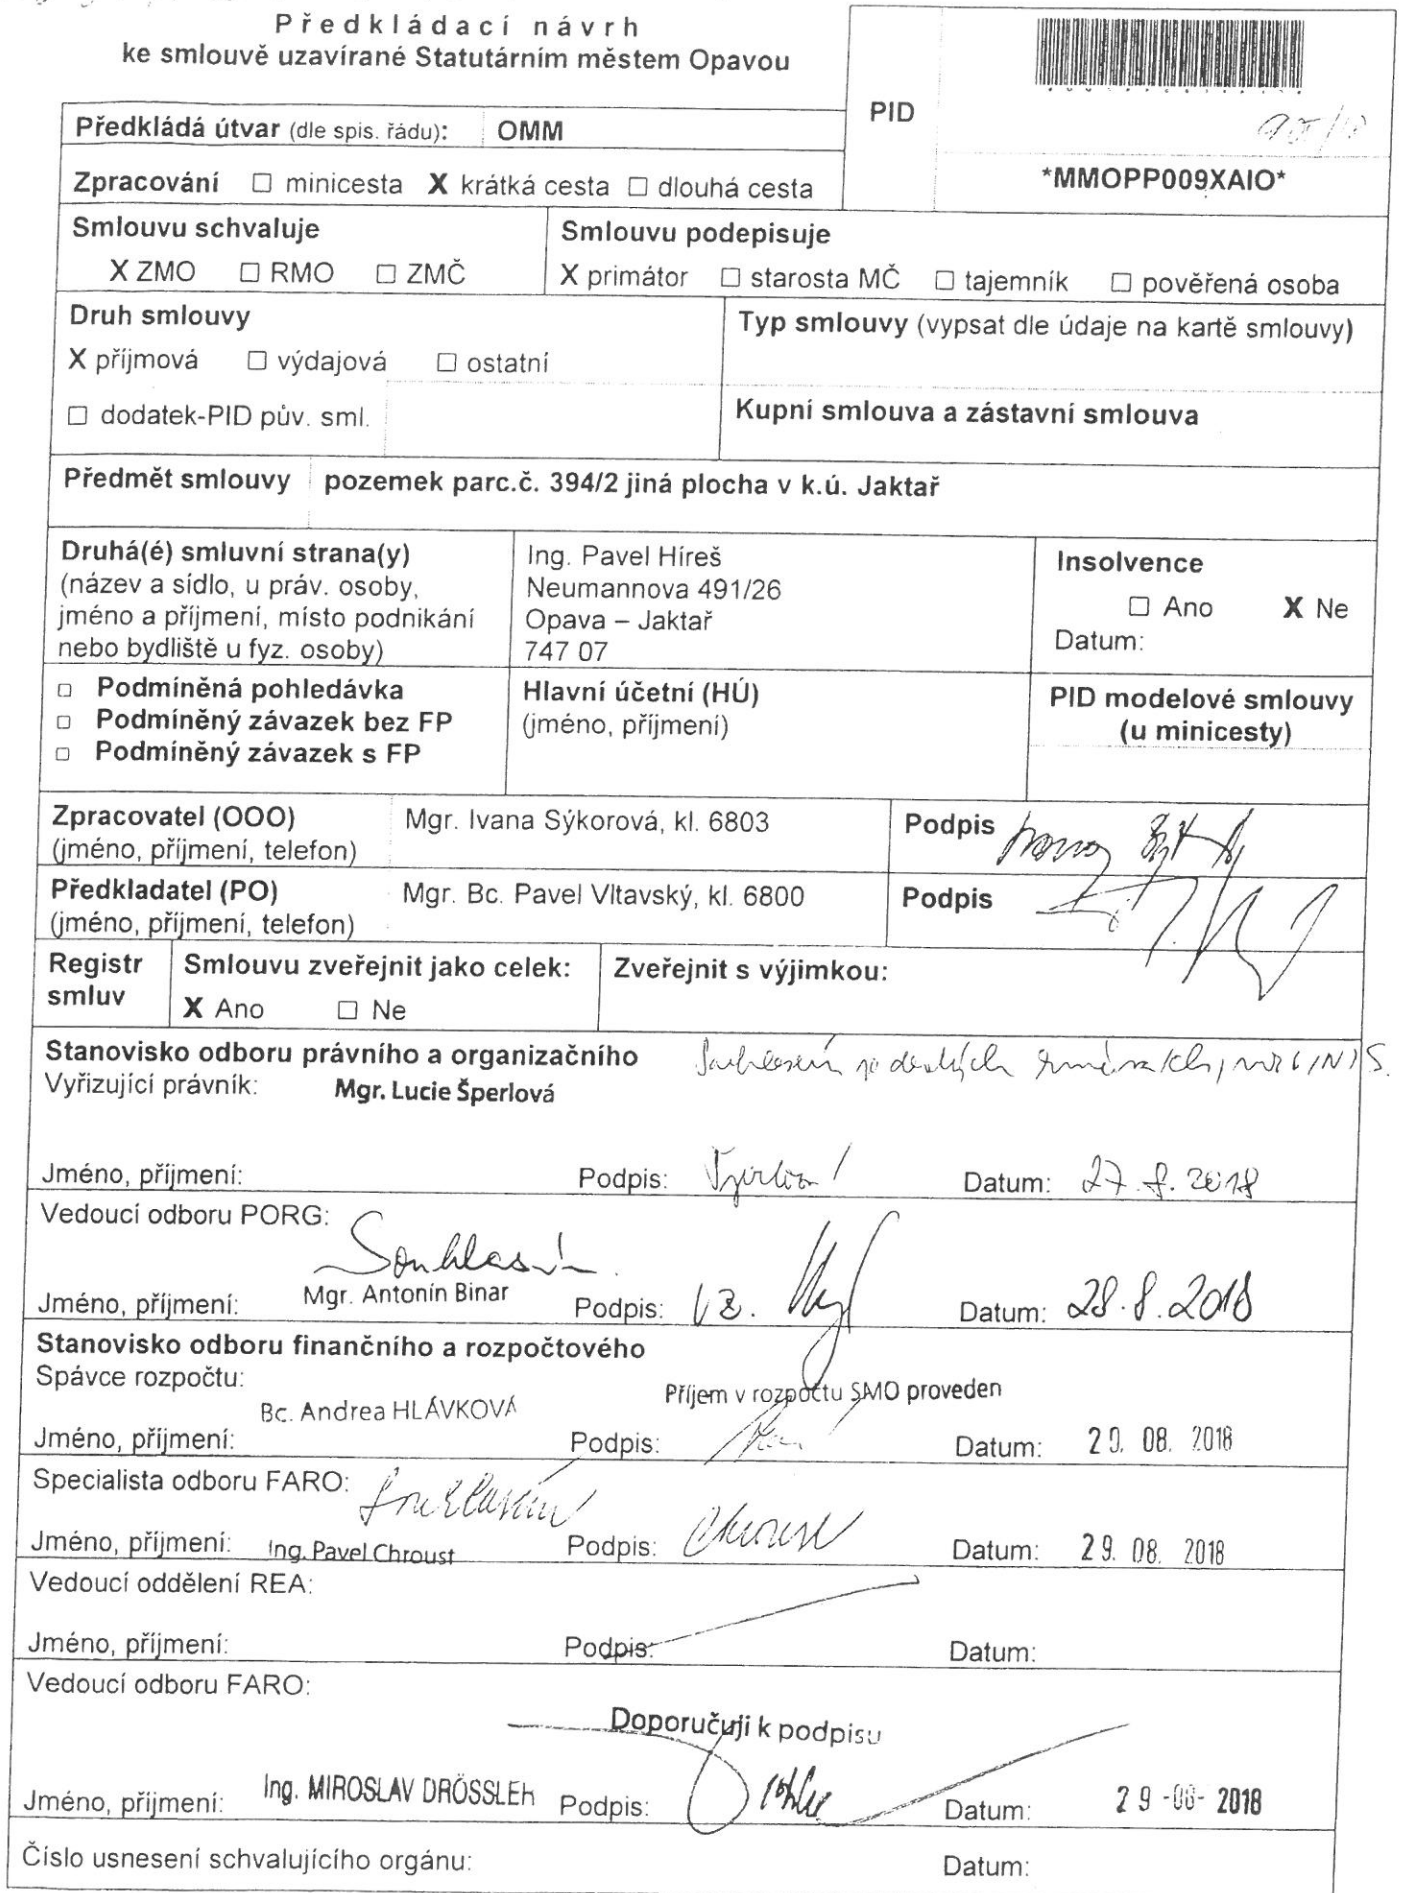 Předkládací návrh
ke smlouvě uzavírané Statutárním městem Opavou
PID
*MMOPP009XAIO*
Předkládá útvar (dle spis. řádu): OMM
Zpracování ☐ minicesta X krátká cesta ☐ dlouhá cesta
Smlouvu schvaluje
X ZMO ☐ RMO ☐ ZMČ
Smlouvu podepisuje
X primátor ☐ starosta MČ ☐ tajemník ☐ pověřená osoba
Druh smlouvy
X příjmová ☐ výdajová ☐ ostatní
☐ dodatek-PID pův. sml.
Typ smlouvy (vypsat dle údaje na kartě smlouvy)
Kupní smlouva a zástavní smlouva
Předmět smlouvy pozemek parc.č. 394/2 jiná plocha v k.ú. Jaktař
Druhá(é) smluvní strana(y)
(název a sídlo, u práv. osoby,
jméno a příjmení, místo podnikání
nebo bydliště u fyz. osoby)
Ing. Pavel Híreš
Neumannova 491/26
Opava – Jaktař
747 07
Insolvence
☐ Ano X Ne
Datum:
☐ Podmíněná pohledávka
☐ Podmíněný závazek bez FP
☐ Podmíněný závazek s FP
Hlavní účetní (HÚ)
(jméno, příjmení)
PID modelové smlouvy
(u minicesty)
Zpracovatel (OOO)
(jméno, příjmení, telefon)
Mgr. Ivana Sýkorová, kl. 6803
Podpis
Předkladatel (PO)
(jméno, příjmení, telefon)
Mgr. Bc. Pavel Vltavský, kl. 6800
Podpis
Registr
smluv
Smlouvu zveřejnit jako celek:
X Ano ☐ Ne
Zveřejnit s výjimkou:
Stanovisko odboru právního a organizačního
Vyřizující právník: Mgr. Lucie Šperlová
Jméno, příjmení: Podpis: Datum: 27.8.2018
Vedoucí odboru PORG:
Souhlasím
Mgr. Antonín Binar
Jméno, příjmení: Podpis: Datum: 28.8.2018
Stanovisko odboru finančního a rozpočtového
Spávce rozpočtu:
Příjem v rozpočtu SMO proveden
Bc. Andrea HLÁVKOVÁ
Jméno, příjmení: Podpis: Datum: 29. 08. 2018
Specialista odboru FARO: Souhlasím
Jméno, příjmení: Ing. Pavel Chroust Podpis: Chroust Datum: 29. 08. 2018
Vedoucí oddělení REA:
Jméno, příjmení: Podpis: Datum:
Vedoucí odboru FARO:
Doporučuji k podpisu
Jméno, příjmení: Ing. MIROSLAV DRÖSSLER Podpis: Datum: 29 -08- 2018
Číslo usnesení schvalujícího orgánu: Datum: